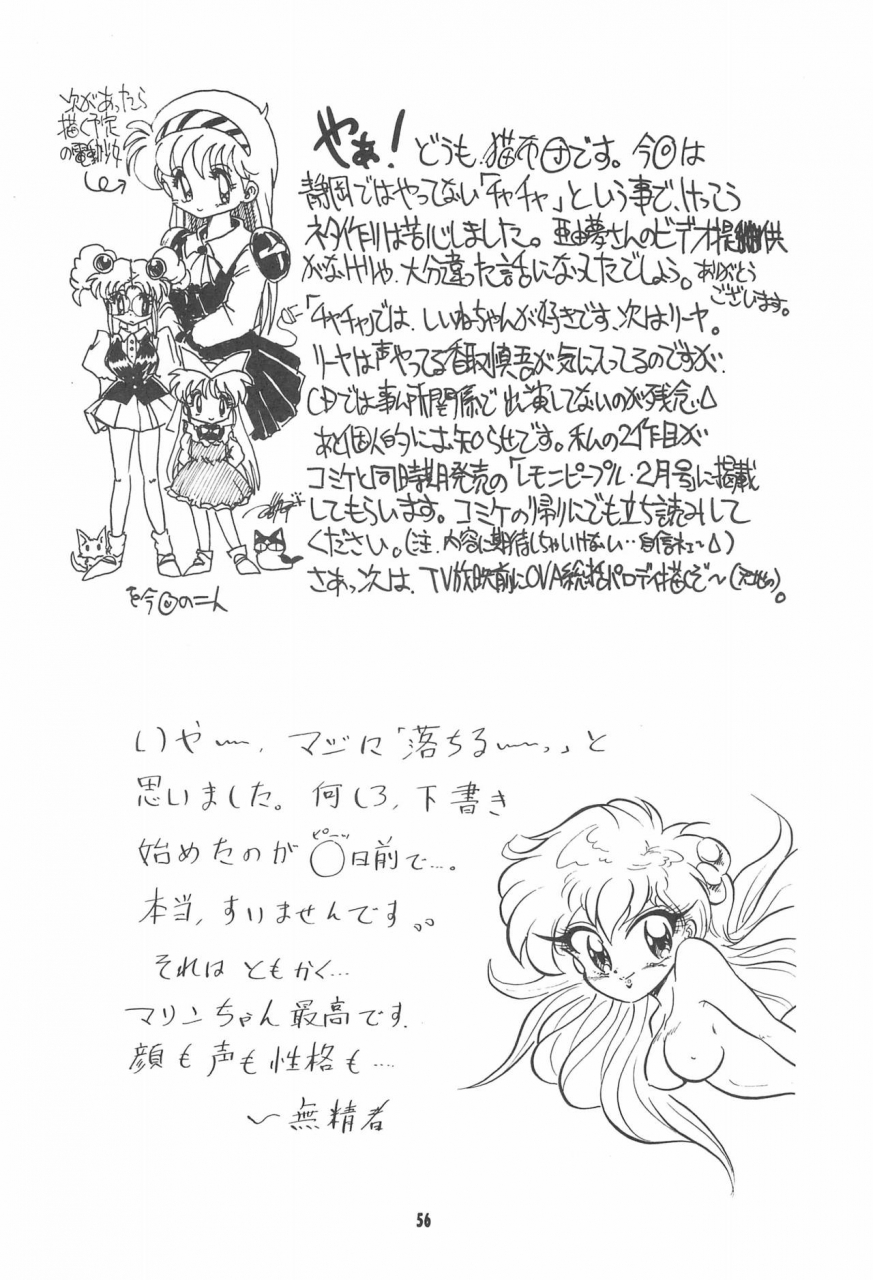 次があったら
描く予定
の電動少女
やぁ! どうも、猫布団です。今回は
静岡ではやってない「チャチャ」という事で、けっこう
ネタ作りは苦心しました。亜由夢さんのビデオ提供
がなけりゃ、大分違った話になってたでしょう。ありがとう
ございます。
「チャチャ」では、しいねちゃんが好きです、次はリーヤ。
リーヤは声やってる香取慎吾が気に入ってるのですが、
CDでは事ム所関係で出演してないのが残念
あと個人的にお知らせです。私の2作目が
コミケと同時期発売の「レモンピープル・2月号」に掲載
してもらいます。コミケの帰りにでも立ち読みして
ください。(注、内容に期待しちゃいけない…自信ネェ〜)
さぁっ次は、TV放映前にOVA総括パロディ描くぞ〜
今回の二人
いやー、マジに「落ちるーっ」と
思いました。何しろ、下書き
始めたのが ピーッ
◯日前で…。
本当、すいませんです。。
それは ともかく…
マリンちゃん最高です.
顔も声も性格も…
〜無精者
56